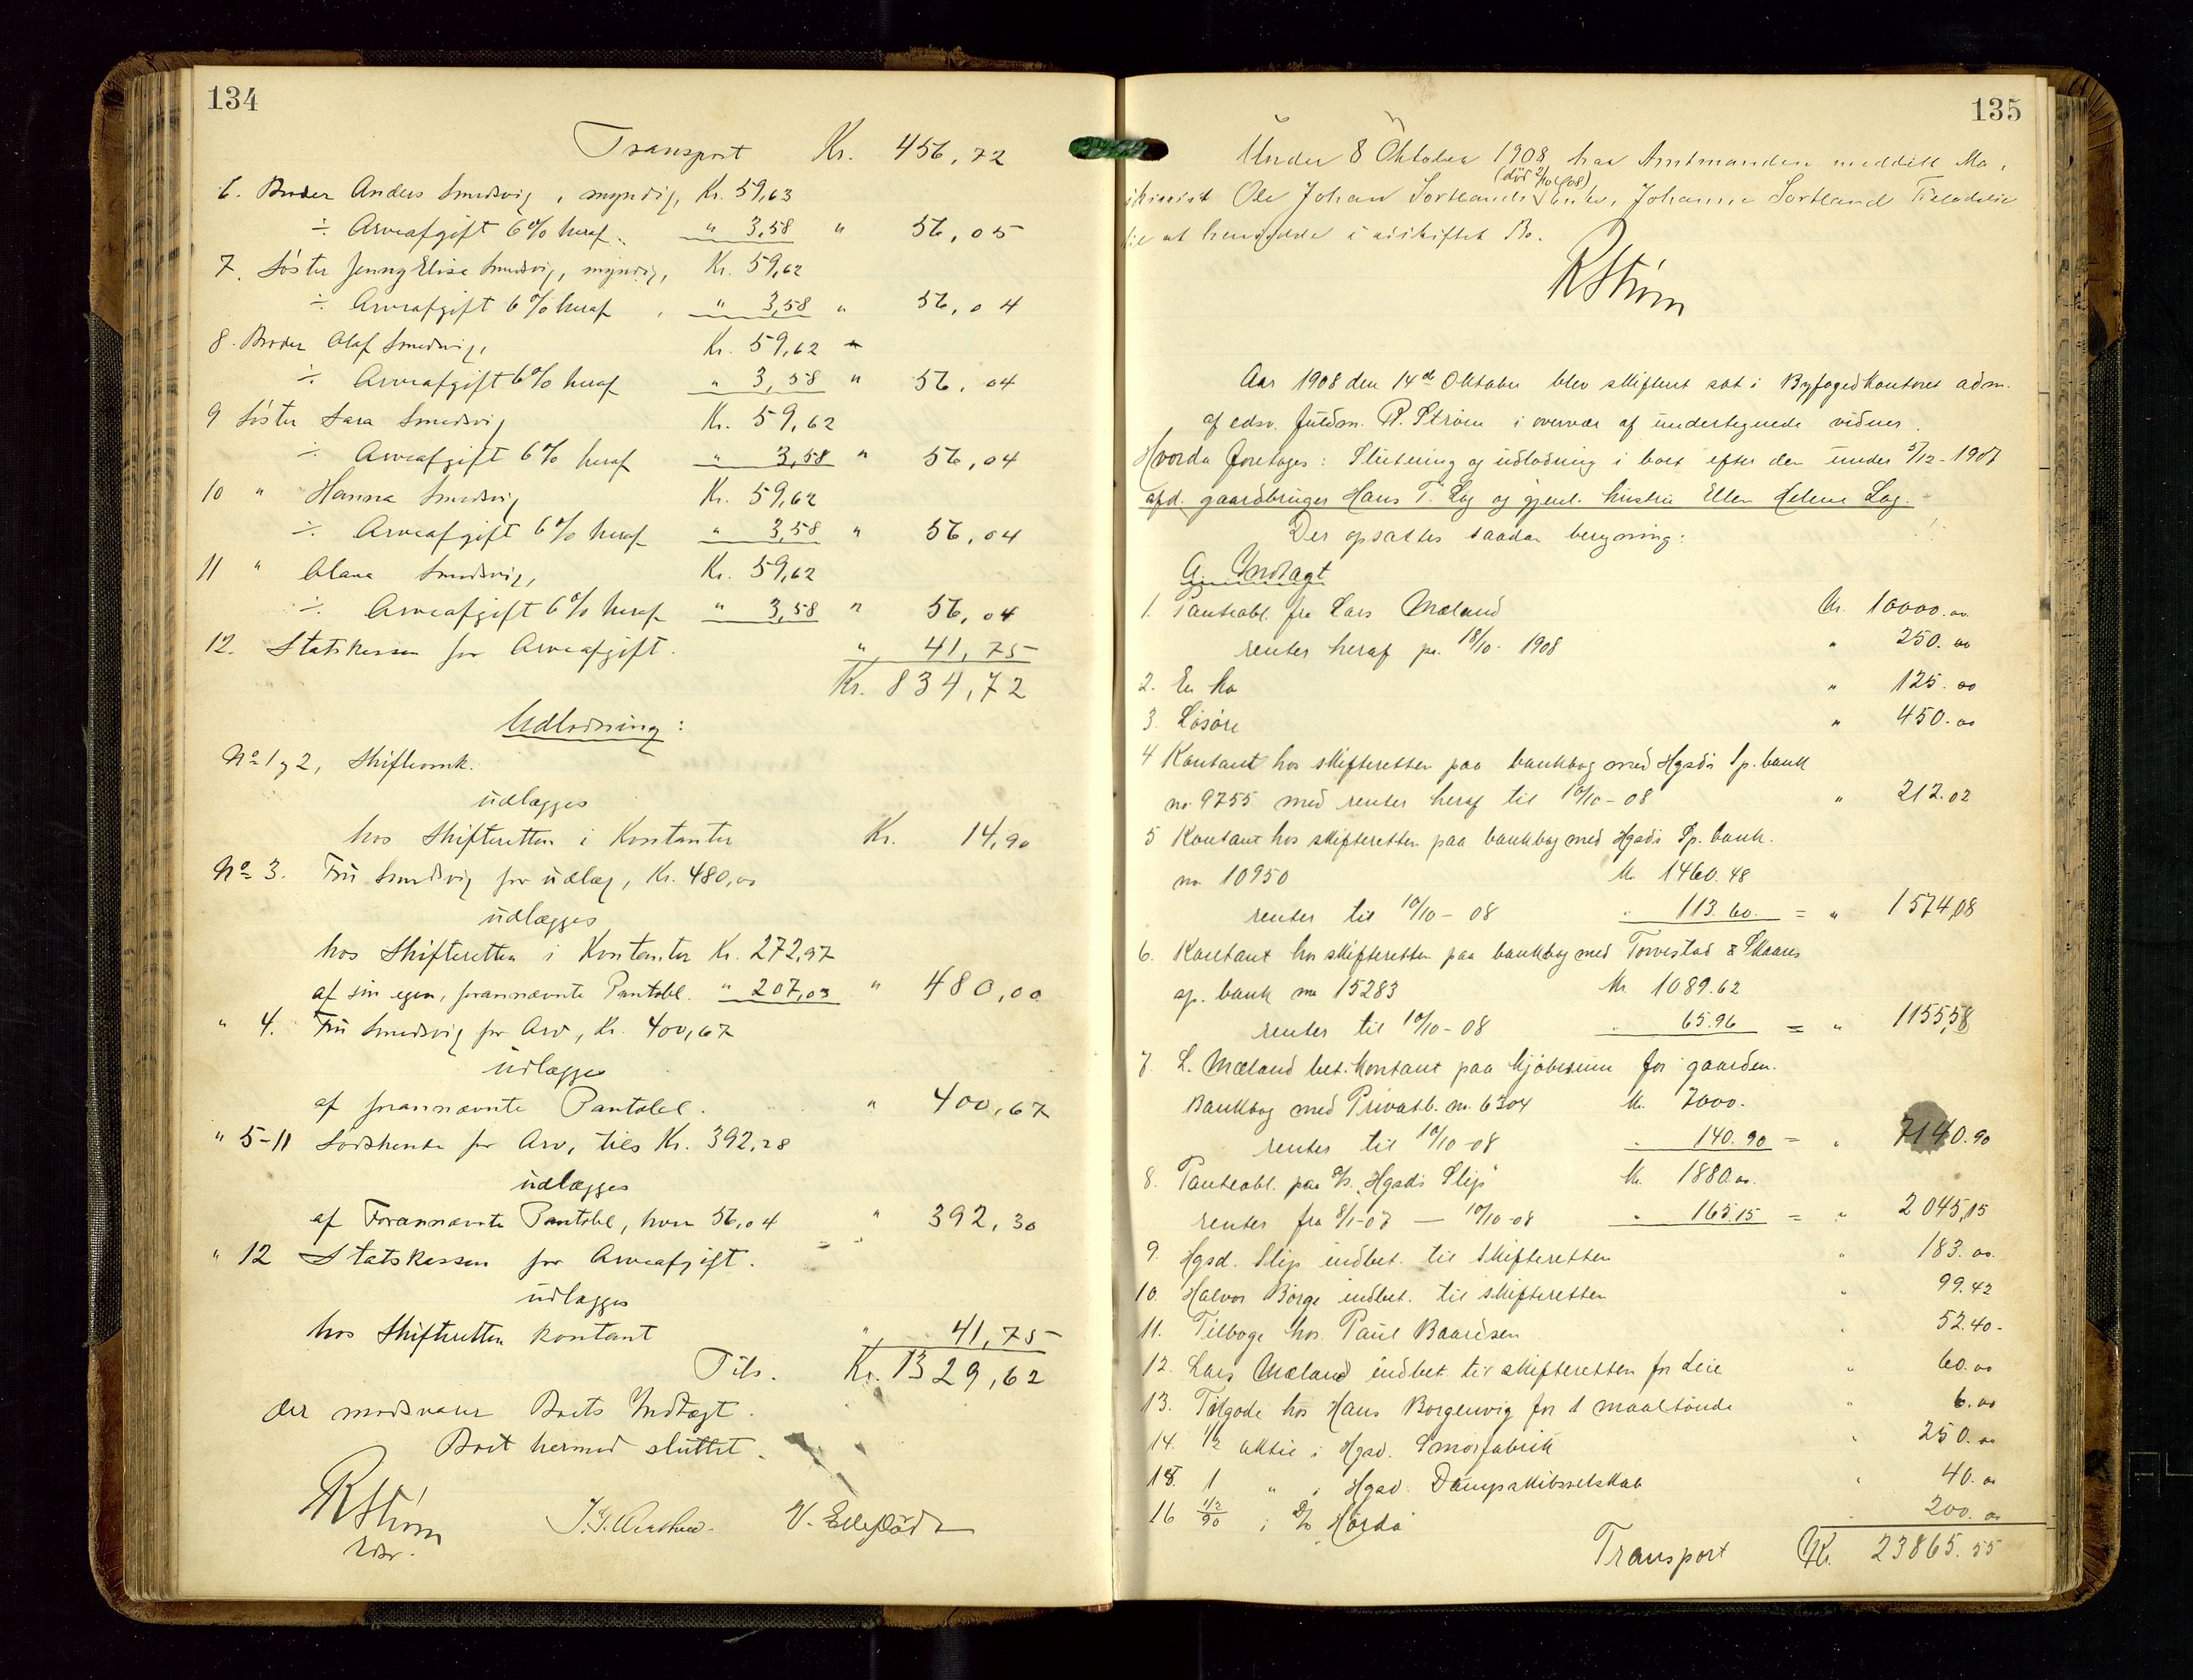 134
Transport Kr. 456,72
6. Broder Anders Smedsvig, myndig, Kr. 59,63
÷ Arveafgift 6% heraf " 3,58 " 56,05
7. Søster Jenny Elise Smedsvig, myndig, Kr. 59,62
÷ Arveafgift 6% heraf " 3,58 " 56,04
8. Broder Olaf Smedsvig, Kr. 59,62
÷ Arveafgift 6% heraf " 3,58 " 56,04
9 Søster Sara Smedsvig Kr. 59,62
÷ Arveafgift 6% heraf " 3,58 " 56,04
10 " Hanna Smedsvig Kr. 59,62
÷ Arveafgift 6% heraf " 3,58 " 56,04
11 " Olava Smedsvig, Kr. 59,62
÷ Arveafgift 6% heraf " 3,58 " 56,04
12. Statskassen for Arveafgift. " 41,75
Kr. 834,72
Udlodning:
No 1 og 2, Skifteomk.
udlægges
hos Skifteretten i Kontanter Kr. 14,90
No 3. Fru Smedsvig for udlæg, Kr. 480,00
udlægges
hos Skifteretten i Kontanter Kr. 272,97
af sin egen, forannævnte Pantobl. " 207,03 " 480,00
" 4. Fru Smedsvig for Arv, Kr. 400,67
udlægges
af forannævnte Pantobl. " 400,67
" 5-11 Sødskende for Arv, tils Kr. 392,28
udlægges
af Forannævnte Pantobl, hver 56,04 " 392,30
" 12 Statskassen for Arveafgift.
udlægges
hos Skifteretten kontant " 41,75
Tils. Kr. 1329,62
der modsvarer Boets Indtægt.
Boet hermed sluttet.
RStrøm
135
Under 8 Oktober 1908 har Amtmanden meddelt Ma-
skinist Ole Johan Sortlands (død 2/10 08) Enke, Johanne Sortland Tilladelse
til at hensidde i uskiftet Bo.
RStrøm
Aar 1908 den 14de Oktober blev skifteret sat i Byfogedkontoret adm.
af edsv. fuldm. R. Strøm i overvær af undertegnede vidner.
Hvorda foretages: Slutning og udlodning i boet efter den under 5/12-1907
afd. gaardbruger Hans T. Lag og gjenl. hustru Ellen Helene Lag.
Der opsattes saadan beregning:
A. Indtægt
1. Panteobl. fra Lars Mæland Kr. 10000.00
renter heraf pr. 18/10- 1908 " 250.00
2. En ko " 125.00
3. Løsøre " 450.00
4 Kontant hos skifteretten paa bankbog med Hgsds Sp. bank
no. 9755 med renter heraf til 10/10-08 " 212.02
5 Kontant hos skifteretten paa bankbog med Hgsds Sp. bank.
no. 10950 Kr. 1460.48
renter til 10/10-08 " 113.60 = " 1574,08
6. Kontant hos skifteretten paa bankbog med Torvestad & Skaares
sp. bank no 15283 Kr. 1089.62
renter til 10/10-08 " 65.96 = " 1155,58
7. L. Mæland bet. kontant paa kjøbesum for gaarden.
Bankbog med Privatb. no. 6304 Kr. 7000.
renter til 10/10-08 " 140.90 = " 7140.90
8. Panteobl. paa A/S "Hgsds Slip" Kr. 1880.00.
renter fra 8/1-07 — 10/10-08 " 165.15 = " 2045,15
9. Hgsd. Slip indbet. til Skifteretten " 183.00.
10. Halvor Børge indbet. til skifteretten " 99.42
11. Tilbage hos Paul Baardsen " 52.40-
12. Lars Mæland indbet. til skifteretten for leie " 60.00
13. Tilgode hos Hans Borgenvig for 1 maaltønde " 6.00
14. 1/2 aktie i Hgsd. Smørfabrik " 250.00
15. 1 " i Hgsd. Dampskibsselskab " 40.00
16 1/2/90 i D/S Hørda 200.00
Transport Kr. 23865.55